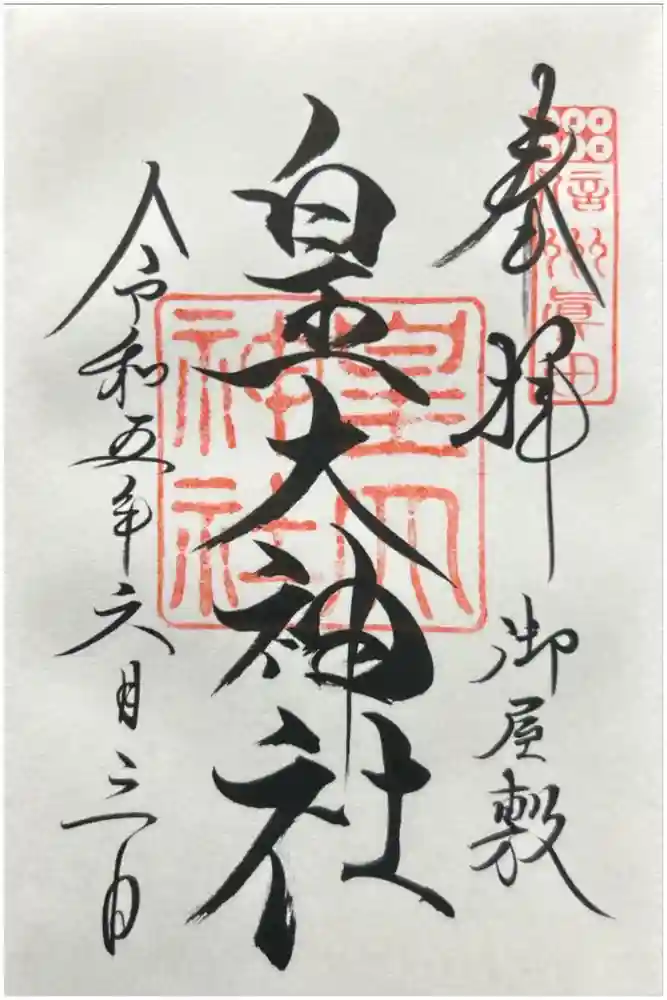 奉拝
御屋敷
信州眞田
皇大神社
皇大神社
令和五年六月三日